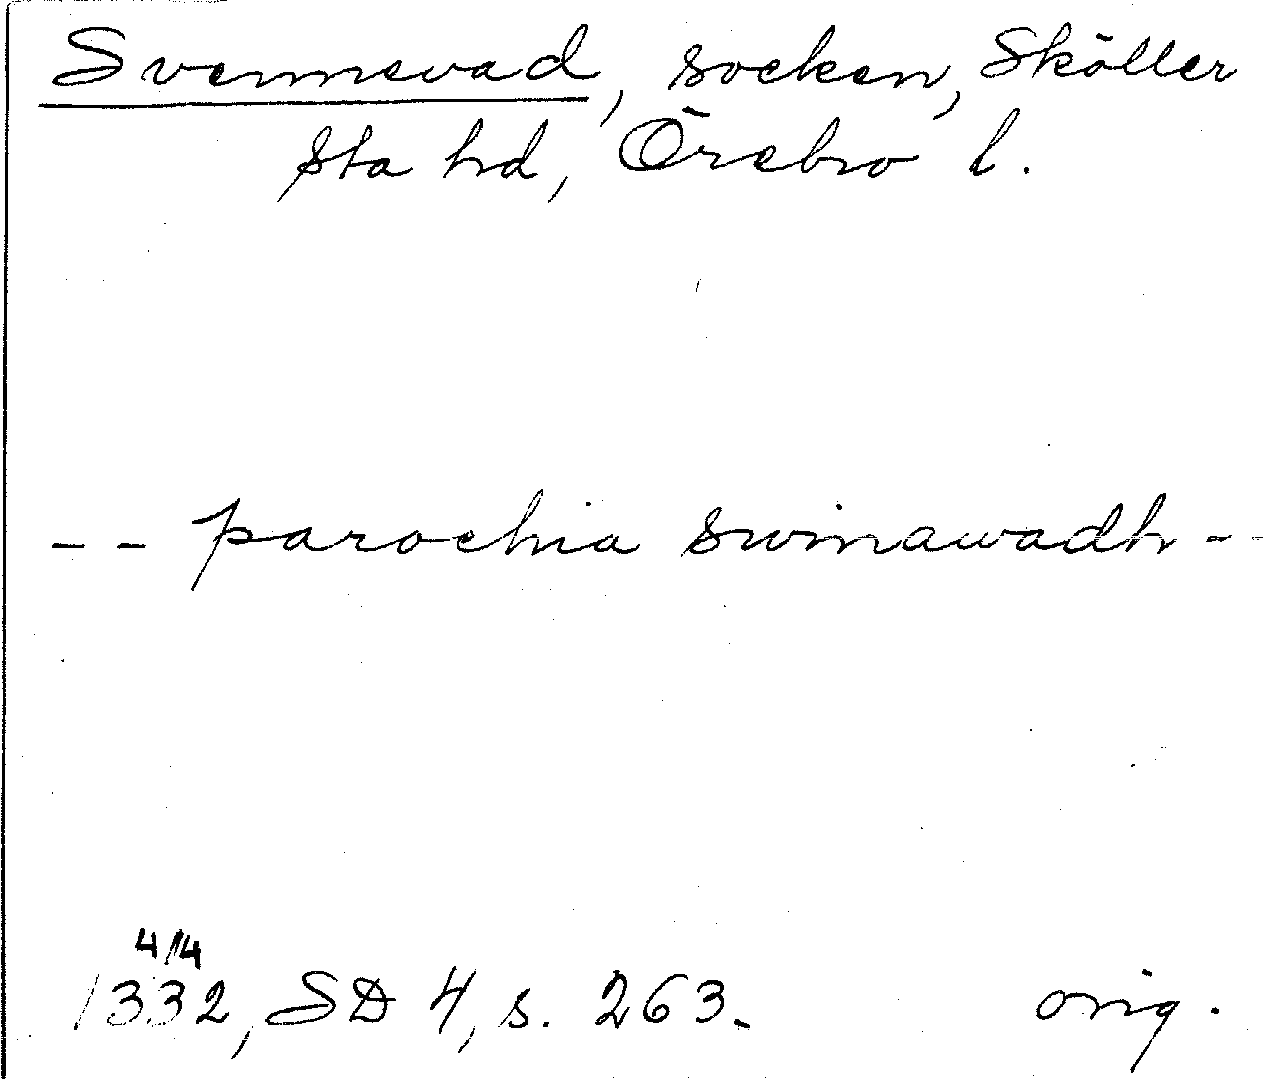 Svennevad, socken, Sköller
sta hd, Örebro l.
-- parochia swinawadh --
4/4
1332, SD 4, s. 263.
orig.